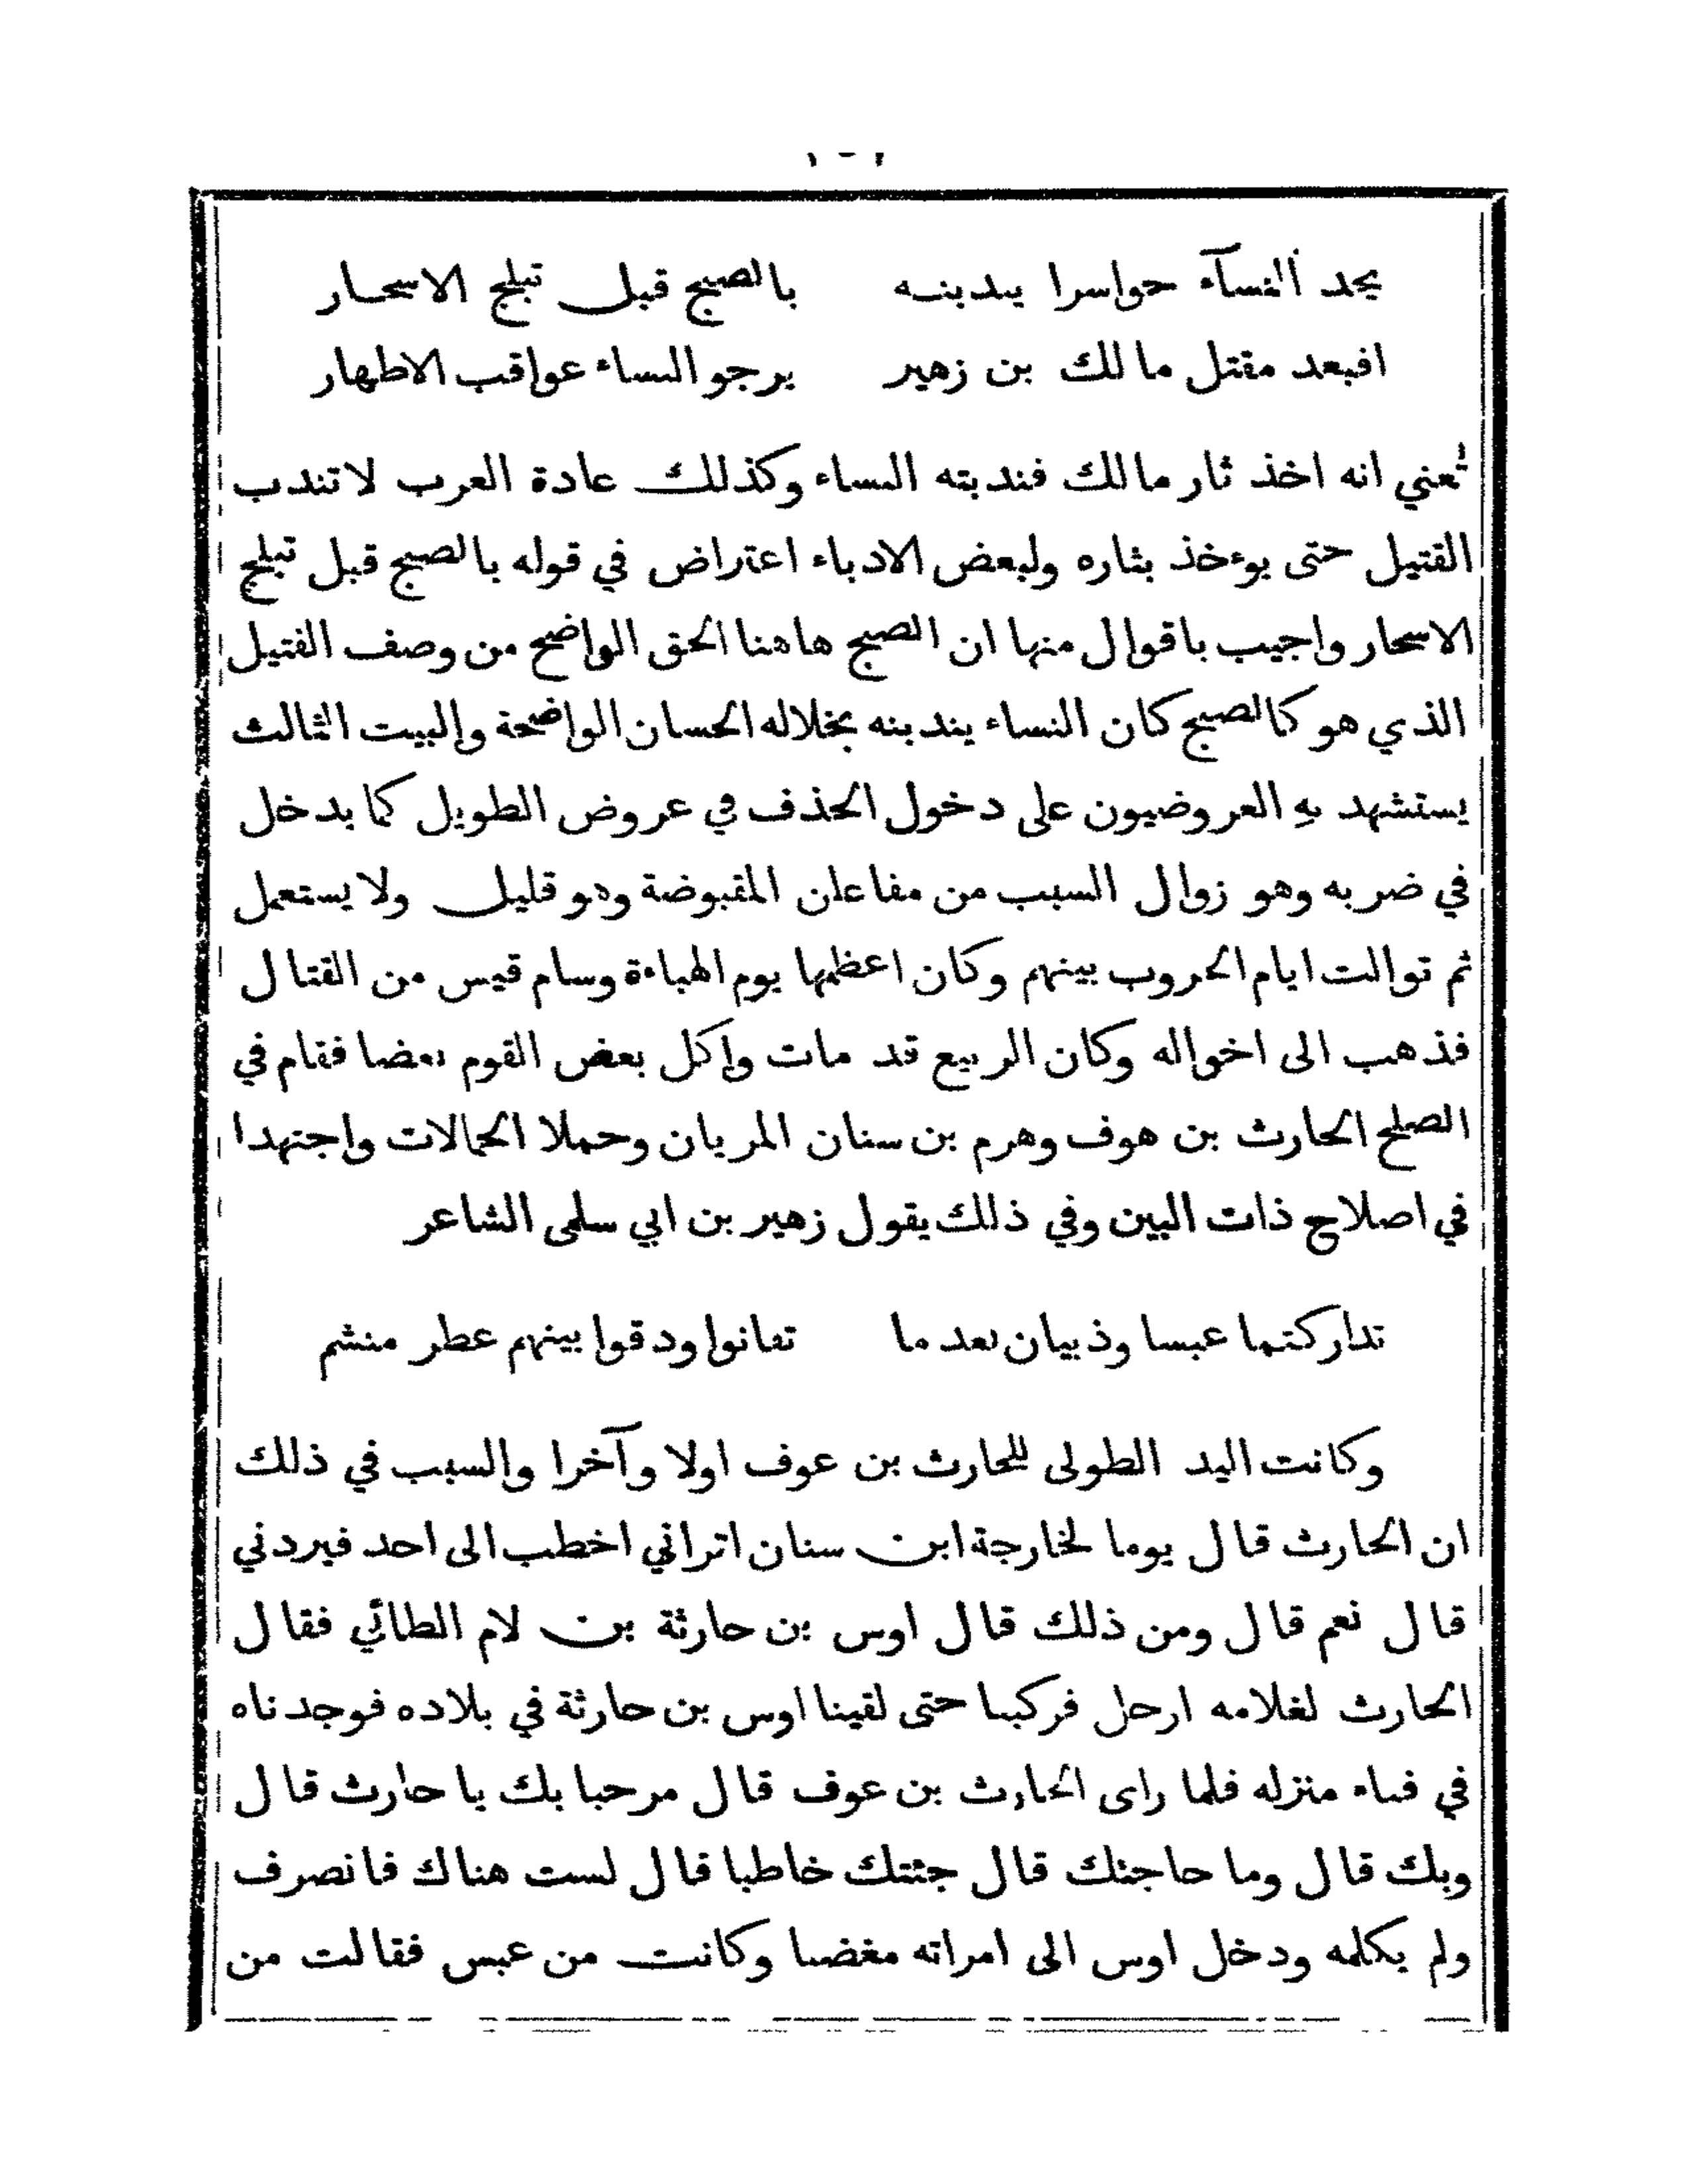 يجد النسآء حواسرا يندبنه بالصبح قبل تبلج الاسحار
افبعد مقتل مالك بن زهير يرجو النساء عواقب الاطهار
تعني انه اخذ ثار مالك فندبته النساء وكذلك عادة العرب لا تندب
القتيل حتى يوءخذ بثاره ولبعض الادباء اعتراض في قوله بالصبح قبل تبلج
الاسحار واجيب باقوال منها ان الصبح هاهنا الحق الواضح من وصف القتيل
الذي هو كالصبح كان النساء يندبنه بخلاله الحسان الواضحة والبيت الثالث
يستشهد به العروضيون على دخول الحذف في عروض الطويل كما يدخل
في ضربه وهو زوال السبب من مفاعلن المقبوضة وهو قليل ولا يستعمل
ثم توالت ايام الحروب بينهم وكان اعظمها يوم الهباءة وسام قيس من القتال
فذهب الى اخواله وكان الربيع قد مات واكل بعض القوم بعضا فقام في
الصلح الحارث بن هوف وهرم بن سنان المريان وحملا الحمالات واجتهدا
في اصلاح ذات البين وفي ذلك يقول زهير بن ابي سلمى الشاعر
تداركتما عبسا وذبيان بعد ما تفانوا ودقوا بينهم عطر منشم
وكانت اليد الطولى للحارث بن عوف اولا وآخرا والسبب في ذلك
ان الحارث قال يوما لخارجة ابن سنان اتراني اخطب الى احد فيردني
قال نعم قال ومن ذلك قال اوس بن حارثة بن لام الطائي فقال
الحارث لغلامه ارحل فركبنا حتى لقينا اوس بن حارثة في بلاده فوجدناه
في فناء منزله فلما راى الحارث بن عوف قال مرحبا بك يا حارث قال
وبك قال وما حاجتك قال جئتك خاطبا قال لست هناك فانصرف
ولم يكلمه ودخل اوس الى امراته مغضبا وكانت من عبس فقالت من